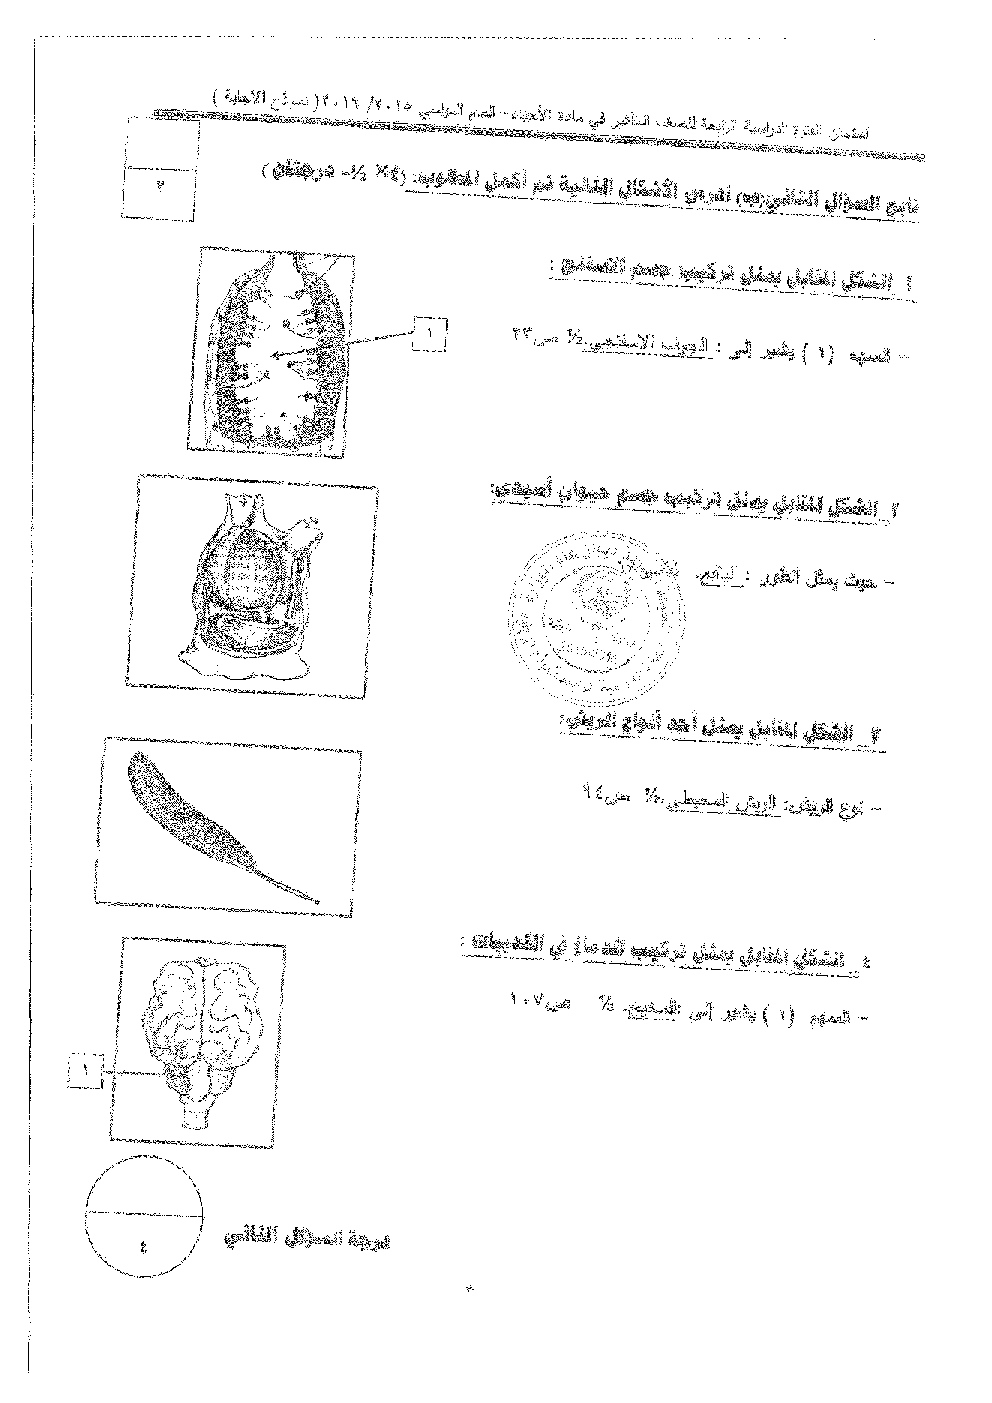 امتحان الفترة الدراسية الرابعة للصف العاشر في مادة الأحياء - العام الدراسي ٢٠١٥/ ٢٠١٦ ( نموذج الاجابة )
٢
تابع السؤال الثاني:(ب) ادرس الأشكال التالية ثم أكمل المطلوب: (٤× ½ = درجتان )
١ الشكل المقابل يمثل تركيب جسم الاسفنج :
١
- السهم (١) يشير إلى : الجوف الاسفنجي. ½ ص٢٣
٢ الشكل المقابل يمثل تركيب جسم حيوان أسيدي:
- حيث يمثل الطور : اليافع.
٣ الشكل المقابل يمثل أحد أنواع الريش:
- نوع الريش: الريش المحيطي. ½ ص٩٤
٤ الشكل المقابل يمثل تركيب الدماغ في الثدييات :
- السهم (١) يشير إلى المخيخ. ½ ص١٠٧
١
درجة السؤال الثاني
٤